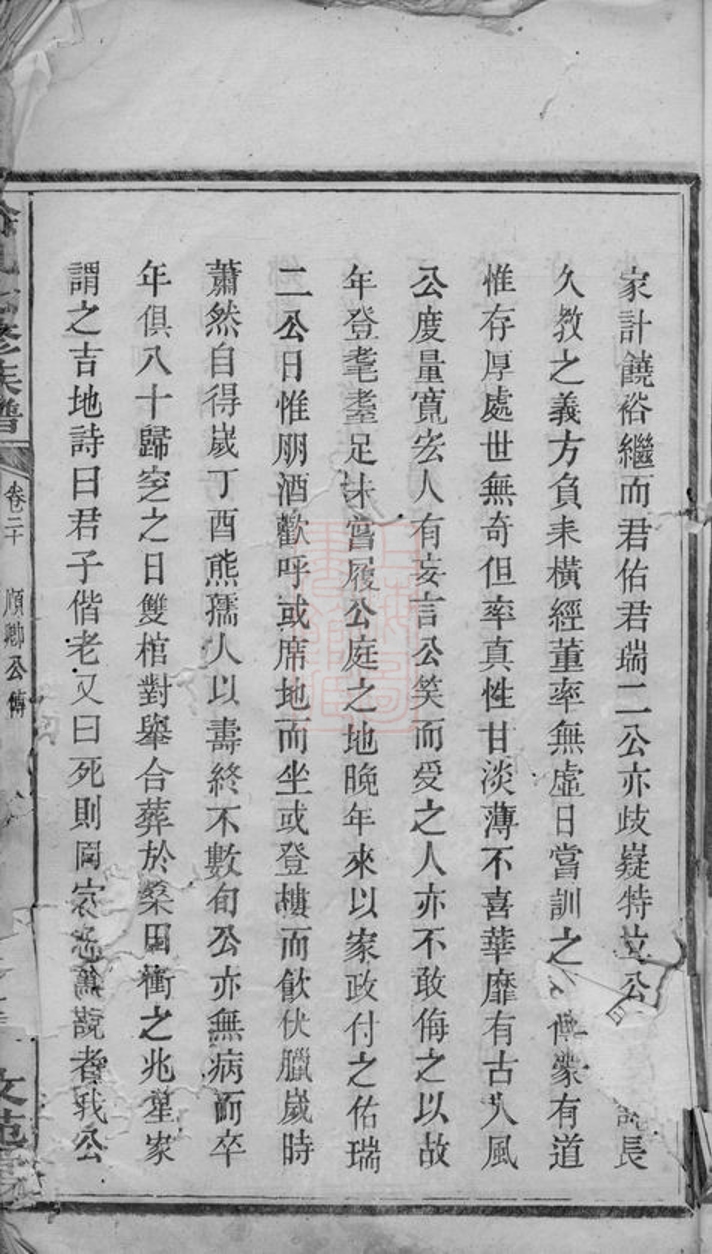 家計饒裕繼而君佑君瑞二公亦歧嶷特立公長
久教之義方負耒橫經董率無虛日嘗訓之家有道
惟存厚處世無奇但率真性甘淡薄不喜華靡有古人風
公度量寬宏人有妄言公笑而受之人亦不敢侮之以故
年登耄耋足未嘗履公庭之地晚年來以家政付之佑瑞
二公日惟朋酒歡呼或席地而坐或登樓而飲伏臘歲時
蕭然自得歲丁酉熊孺人以壽終不數旬公亦無病而卒
年俱八十歸窆之日雙棺對舉合葬於桑田衝之兆堂家
謂之吉地詩曰君子偕老又曰死則同穴者我公
修族譜
卷二十
順卿公傳